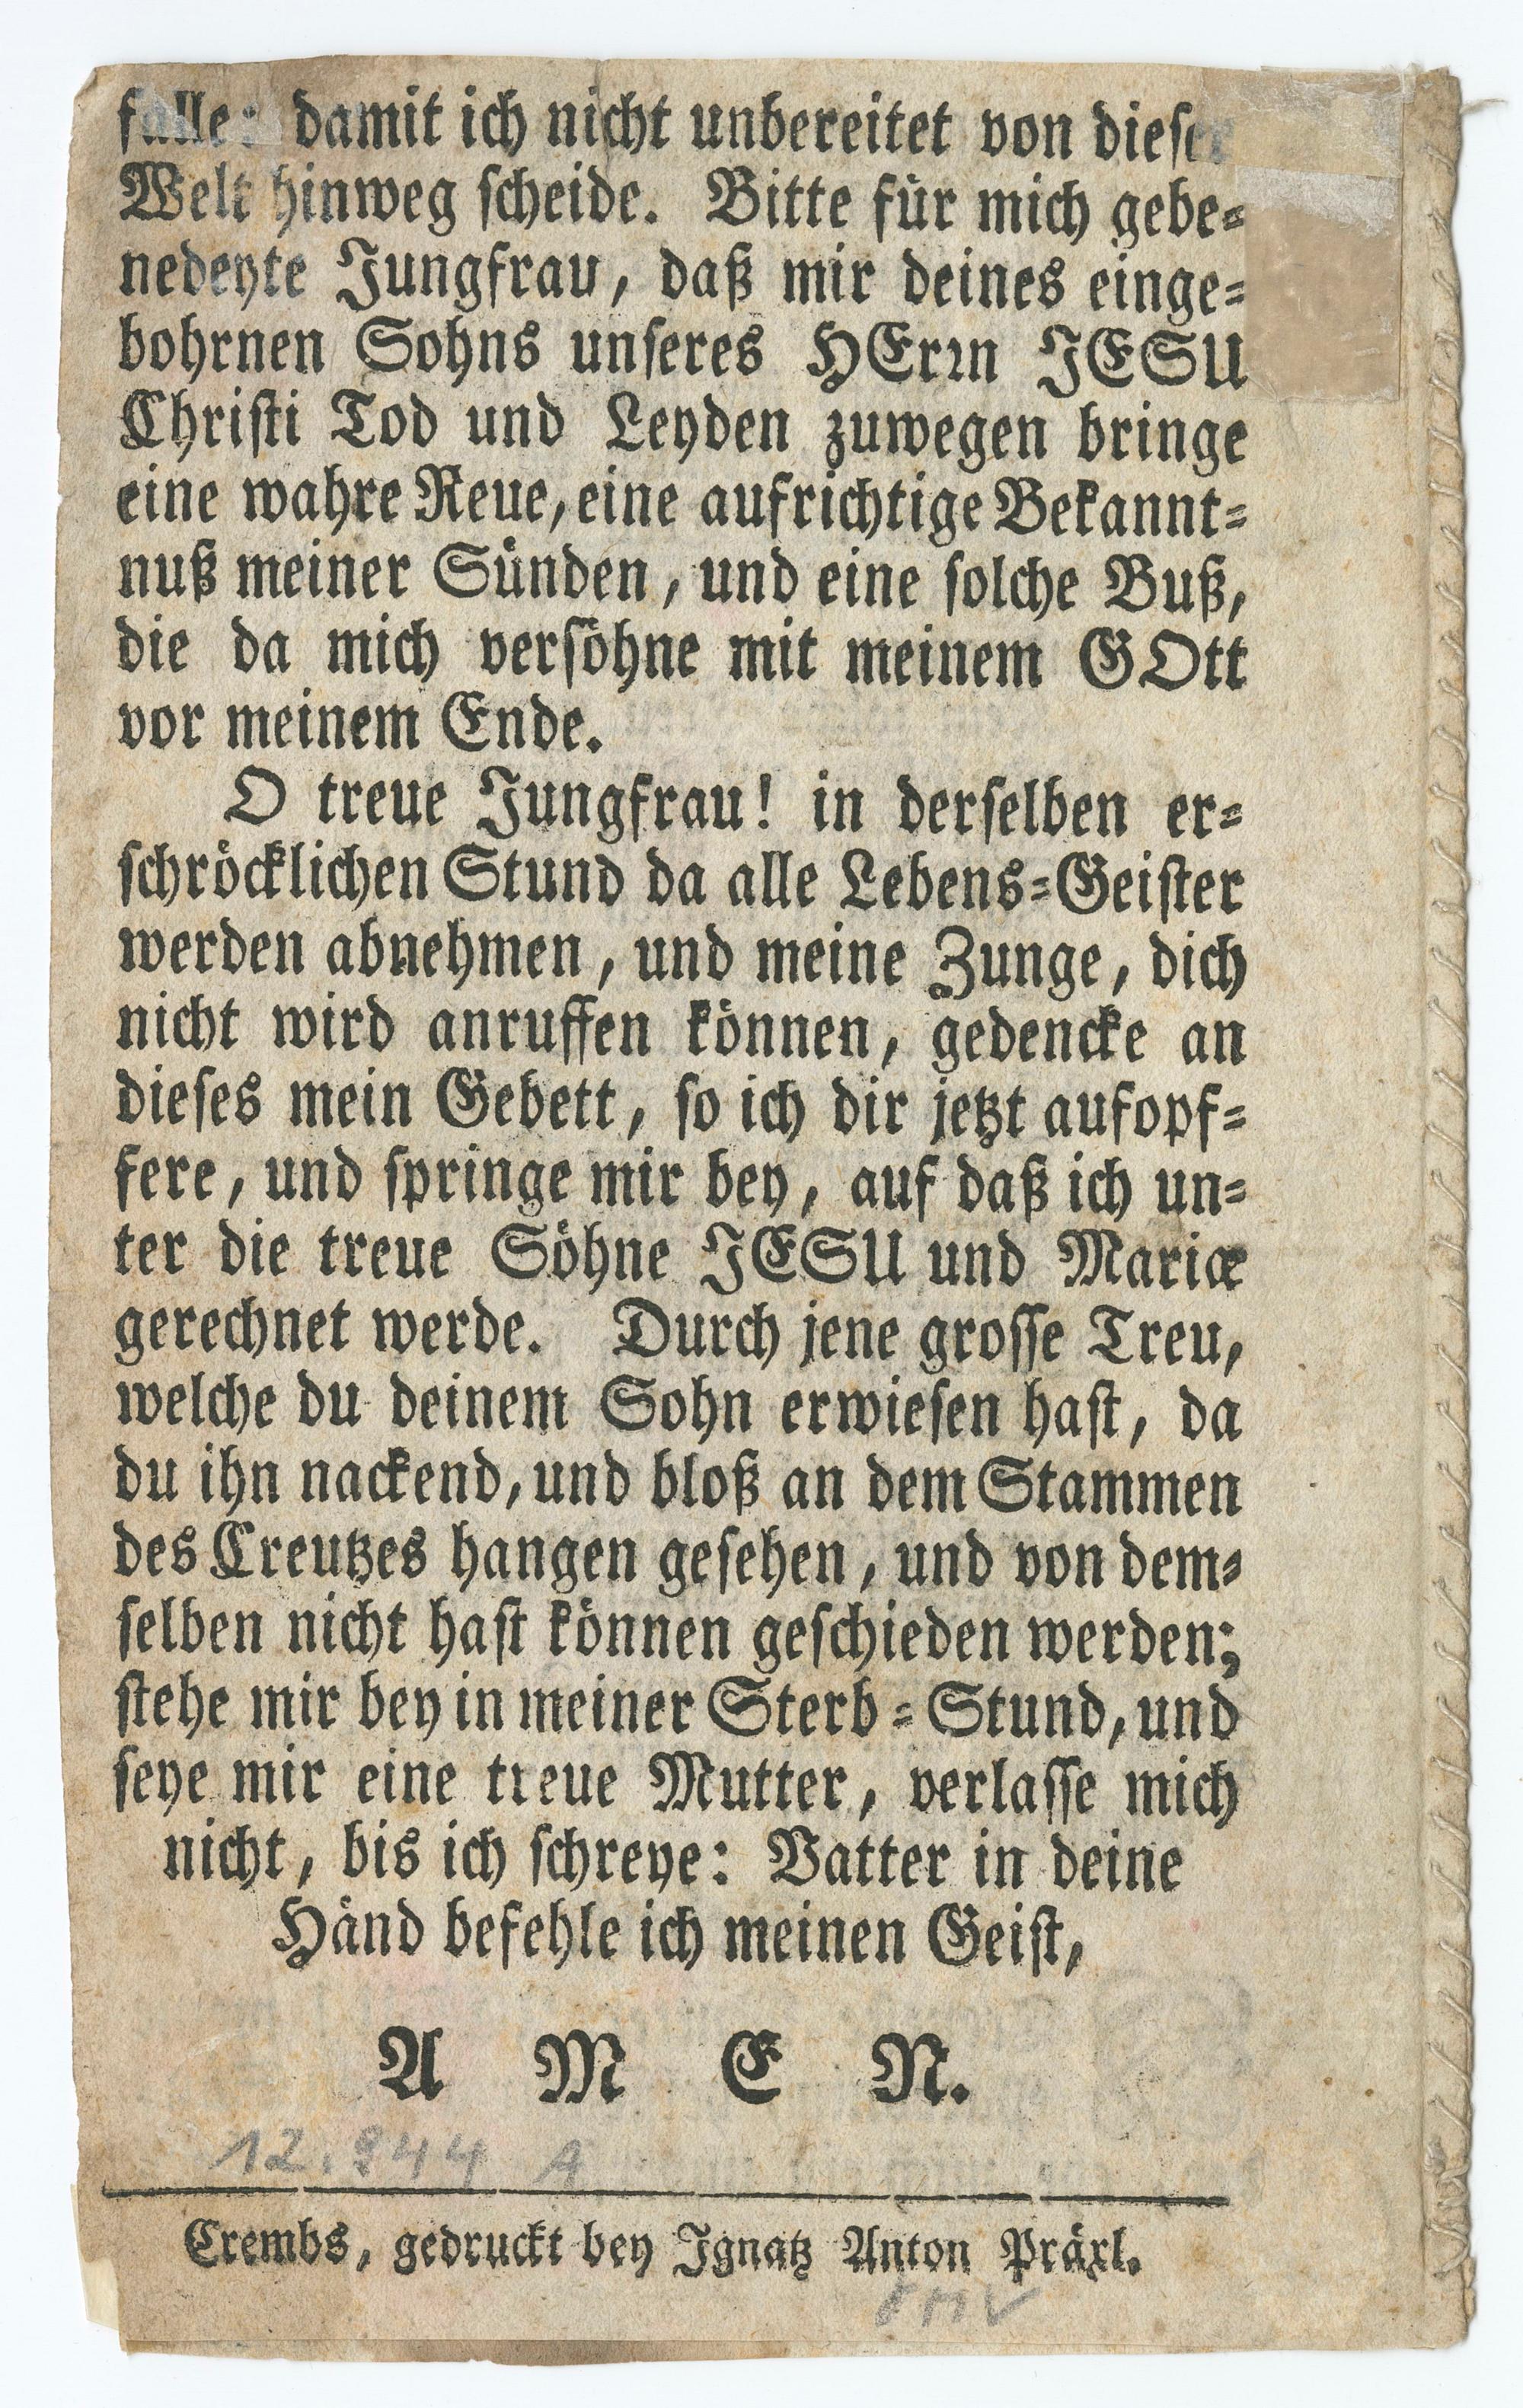 falle: damit ich nicht unbereitet von dieser
Welt hinweg scheide. Bitte für mich gebe-
nedeyte Jungfrau, daß mir deines einge-
bohrnen Sohns unseres HErrn JESU
Christi Tod und Leyden zuwegen bringe
eine wahre Reue, eine aufrichtige Bekannt-
nuß meiner Sünden, und eine solche Buß,
die da mich versöhne mit meinem GOtt
vor meinem Ende.
O treue Jungfrau! in derselben er-
schröcklichen Stund da alle Lebens-Geister
werden abnehmen, und meine Zunge, dich
nicht wird anruffen können, gedencke an
dieses mein Gebett, so ich dir jetzt aufopf-
fere, und springe mir bey, auf daß ich un-
ter die treue Söhne JESU und Mariæ
gerechnet werde. Durch jene grosse Treu,
welche du deinem Sohn erwiesen hast, da
du ihn nackend, und bloß an dem Stammen
des Creutzes hangen gesehen, und von dem-
selben nicht hast können geschieden werden;
stehe mir bey in meiner Sterb-Stund, und
seye mir eine treue Mutter, verlasse mich
nicht, bis ich schreye: Vatter in deine
Händ befehle ich meinen Geist,
A M E N.
12.944 A
Crembs, gedruckt bey Ignatz Anton Präxl.